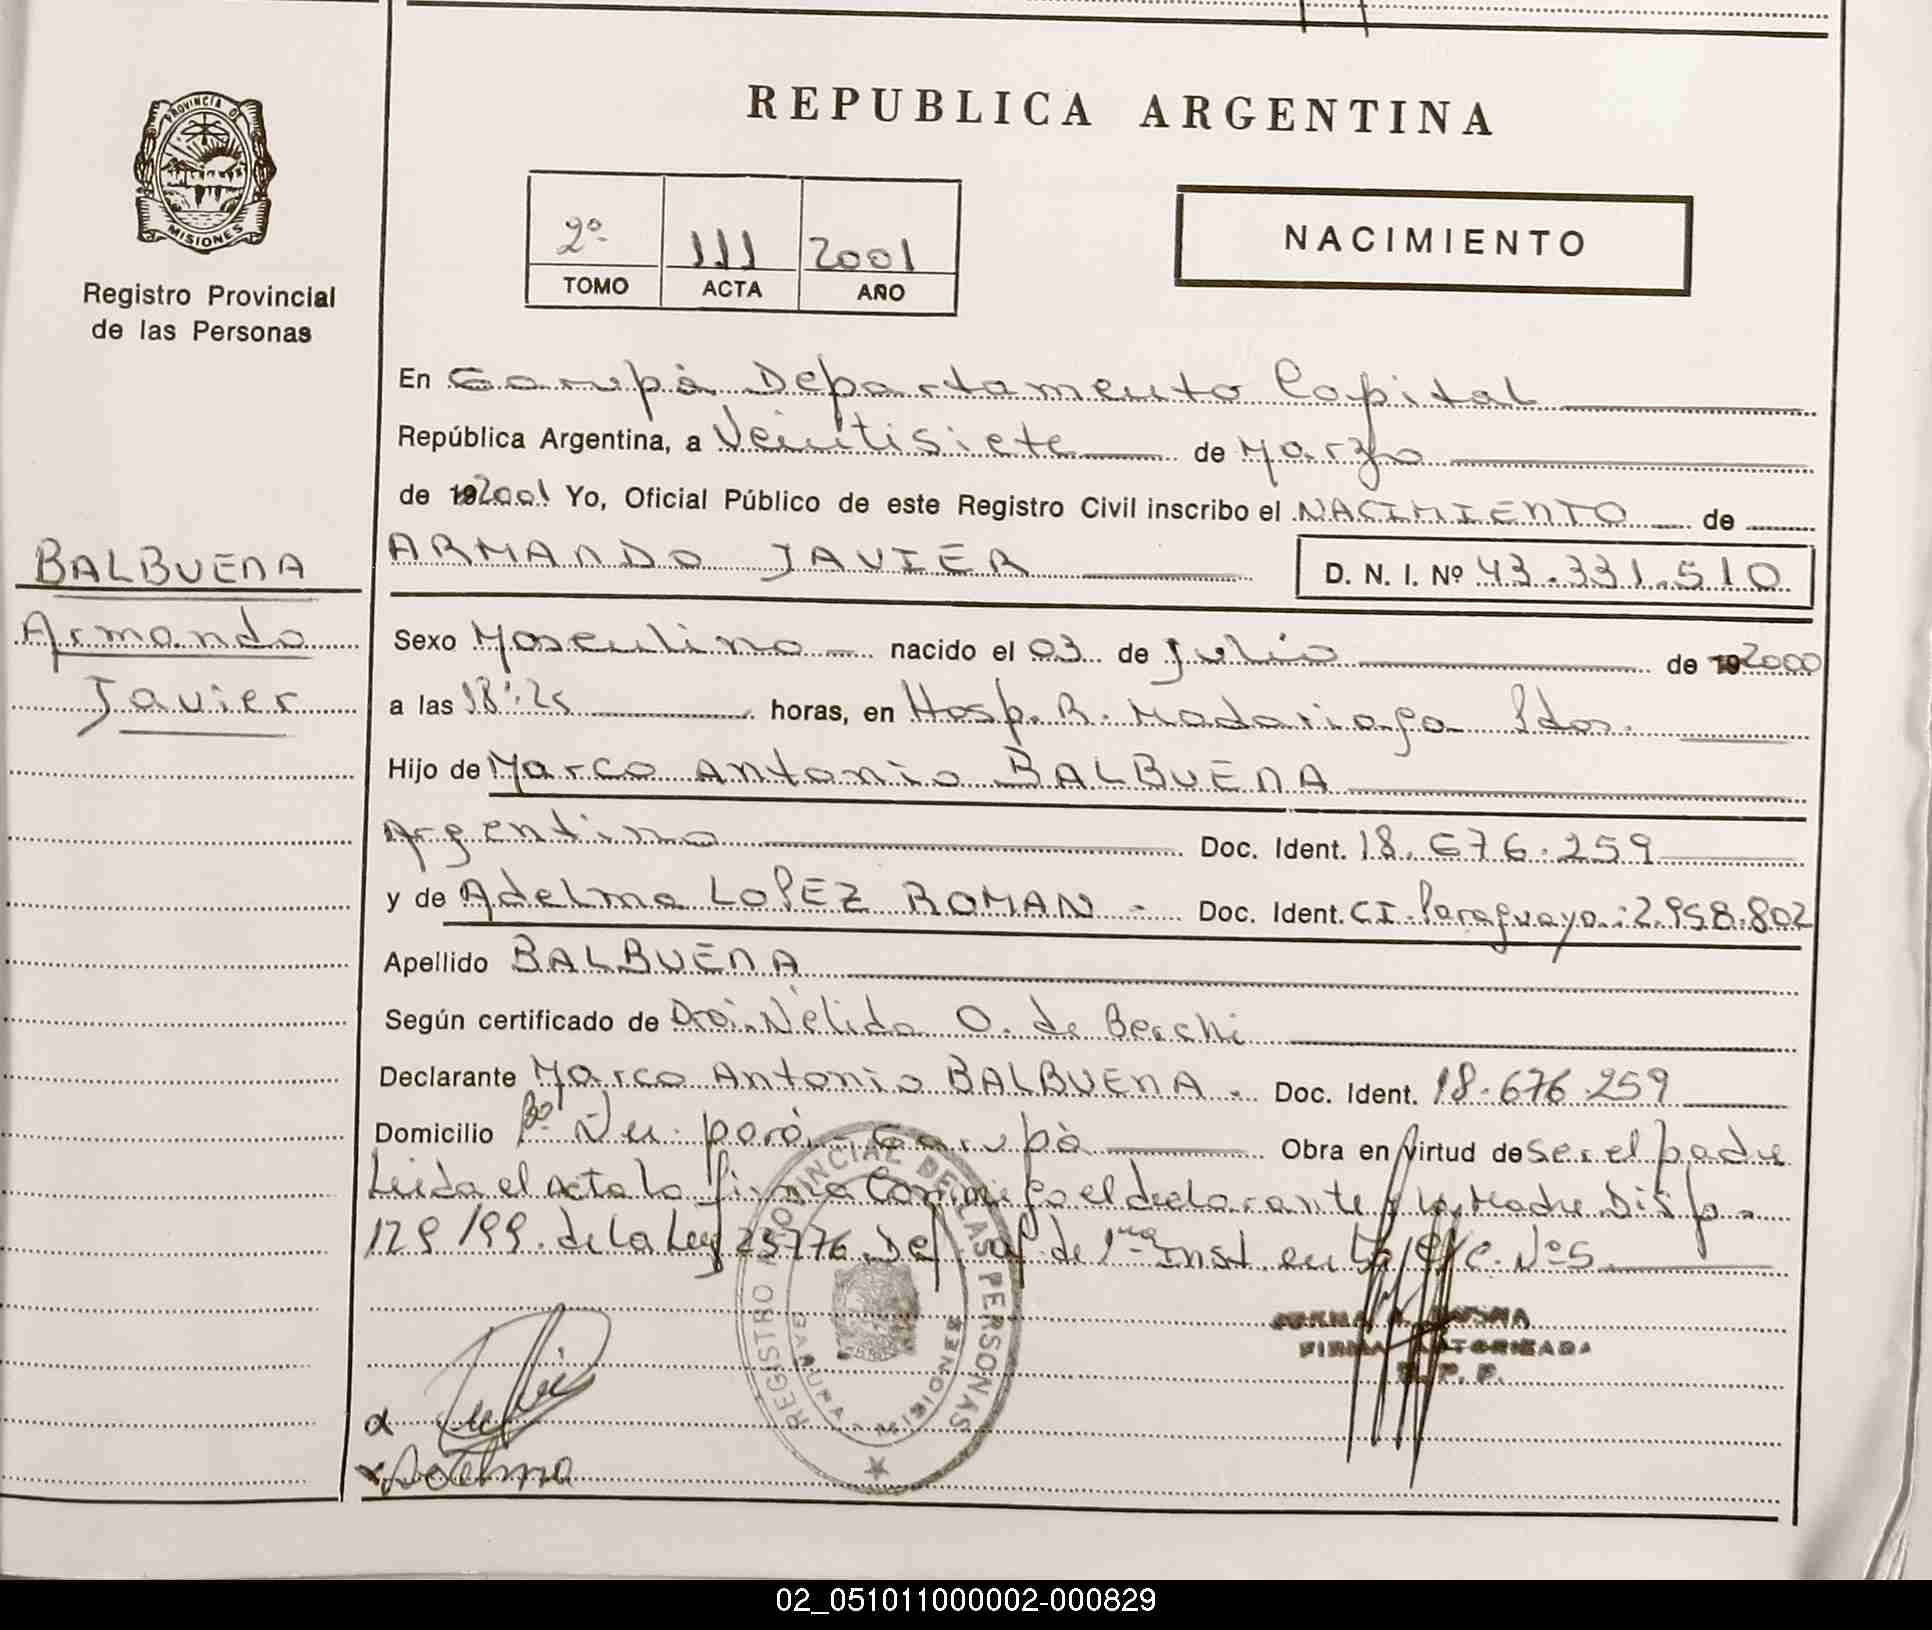 REPUBLICA ARGENTINA
PROVINCIA DE
MISIONES
Registro Provincial
de las Personas
2º 111 2001
TOMO ACTA AÑO
NACIMIENTO
En Garupà Departamento Capital
República Argentina, a Veintisiete de Marzo
de 192001 Yo, Oficial Público de este Registro Civil inscribo el NACIMIENTO de
BALBUENA
Armando
Javier
ARMANDO JAVIER D. N. I. Nº 43.331.510
Sexo Masculino nacido el 03 de Julio de 192000
a las 18:25 horas, en Hosp. R. Madariaga Pdas.
Hijo de Marco Antonio BALBUENA
Argentino Doc. Ident. 18.676.259
y de Adelma LOPEZ ROMAN - Doc. Ident. CI. Paraguaya: 2.958.802
Apellido BALBUENA
Según certificado de Nélida O. de Berchi
Declarante Marco Antonio BALBUENA - Doc. Ident. 18.676.259
Domicilio Bº Ñu porá - Garupà Obra en virtud de ser el padre
Leida el acta la firma conmigo el declarante y la Madre Disp.
129/99. de la Ley de 1ra Inst Nº5
REGISTRO PROVINCIAL DE LAS PERSONAS
MISIONES
FIRMA AUTORIZADA
R. P. P.
Adelma
02_051011000002-000829